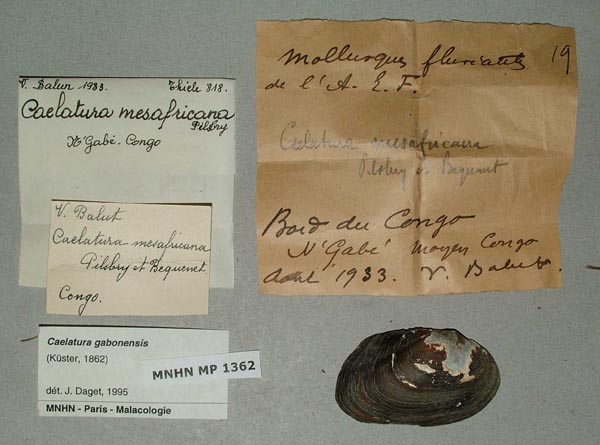 V. Balut 1933. Thiele 818.
Caelatura mesafricana
Pilsbry
N'Gabé. Congo
V. Balut
Caelatura mesafricana
Pilsbry et Bequenet
Congo.
Caelatura gabonensis
(Küster, 1862)
dét. J. Daget, 1995
MNHN - Paris - Malacologie
MNHN MP 1362
Mollusques fluviatils 19
de l'A. E. F.
Caelatura mesafricana
Pilsbry et Bequenet
Bord du Congo
N'Gabé Moyen Congo
Août 1933. V. Balut.